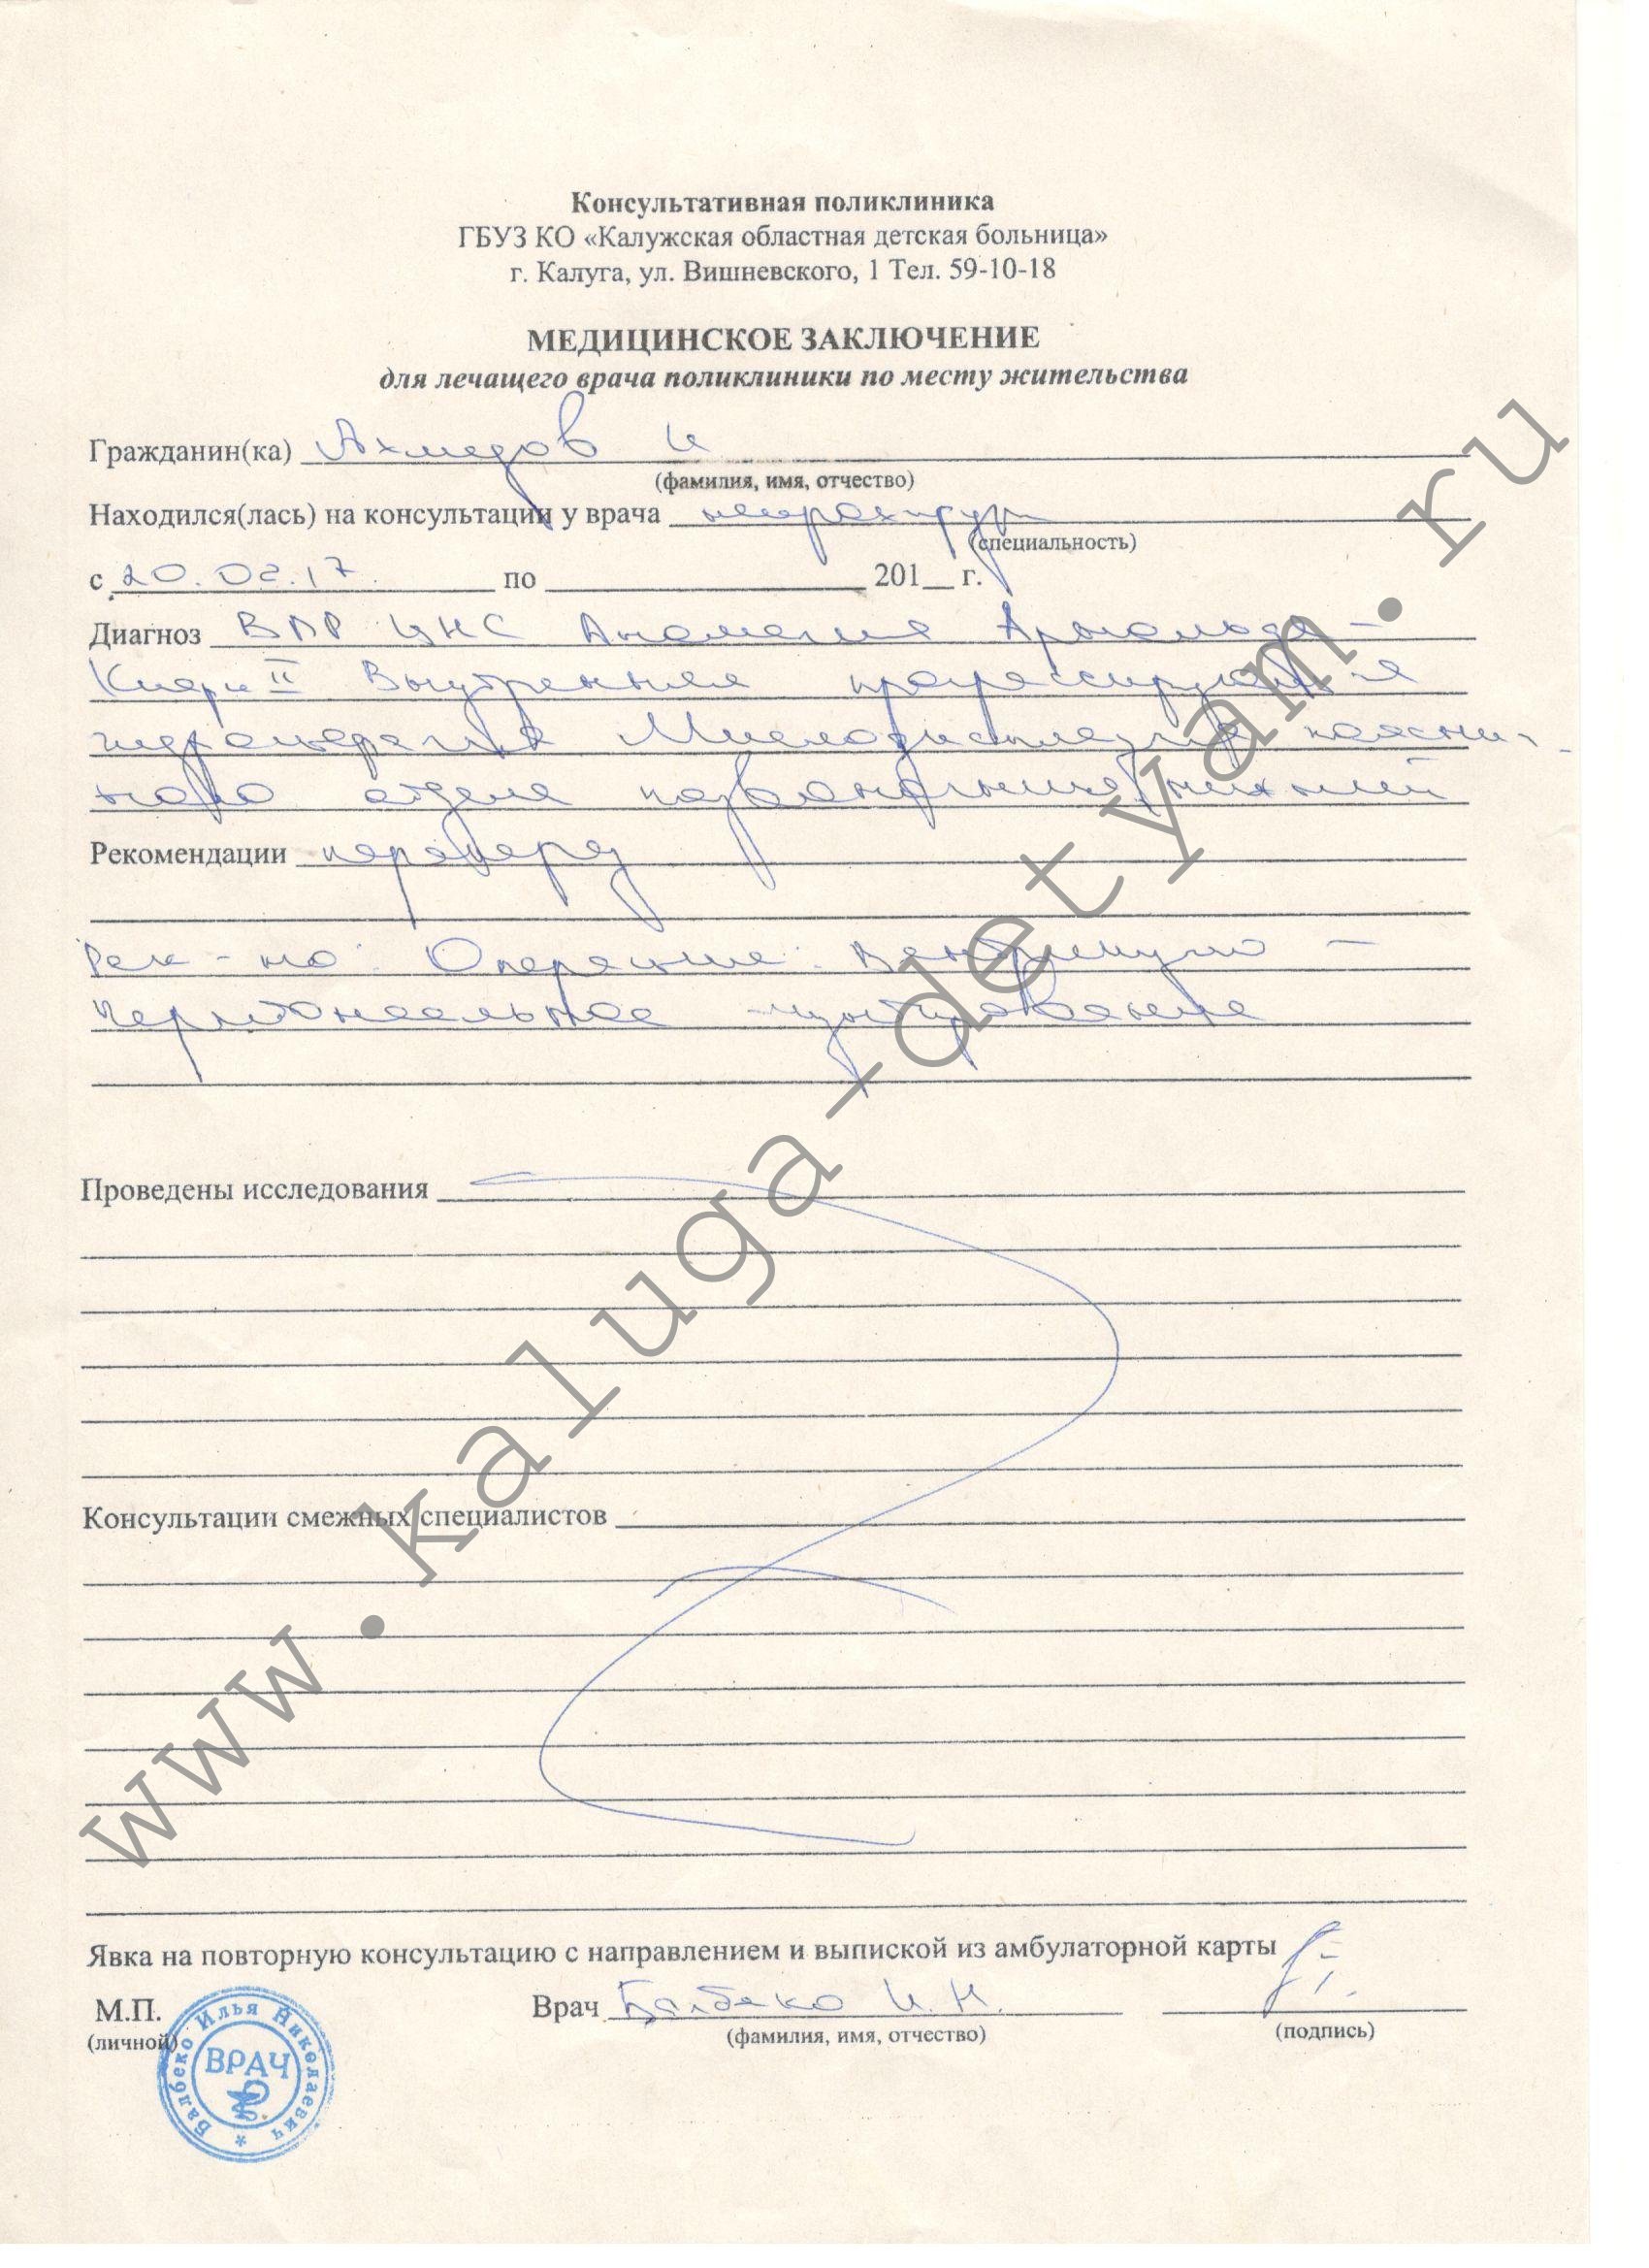 Консультативная поликлиника
ГБУЗ КО «Калужская областная детская больница»
г. Калуга, ул. Вишневского, 1 Тел. 59-10-18
МЕДИЦИНСКОЕ ЗАКЛЮЧЕНИЕ
для лечащего врача поликлиники по месту жительства
Гражданин(ка) Ахмедов И
(фамилия, имя, отчество)
Находился(лась) на консультации у врача нейрохирург
(специальность)
с 20.02.17. по 201 г.
Диагноз ВПР ЦНС Аномалия Арнольда-
Киари II Внутренняя прогрессирующая
гидроцефалия Миелодисплазия пояснич-
ного отдела позвоночника, нижний
Рекомендации парапарез
Рек-но: Операция: Вентрикуло-
перитонеальное шунтирование
Проведены исследования
Консультации смежных специалистов
Явка на повторную консультацию с направлением и выпиской из амбулаторной карты
М.П. Врач Балбеко И.Н.
(личной) (фамилия, имя, отчество) (подпись)
Балбеко Илья Николаевич *
ВРАЧ
www.kaluga-detyam.ru